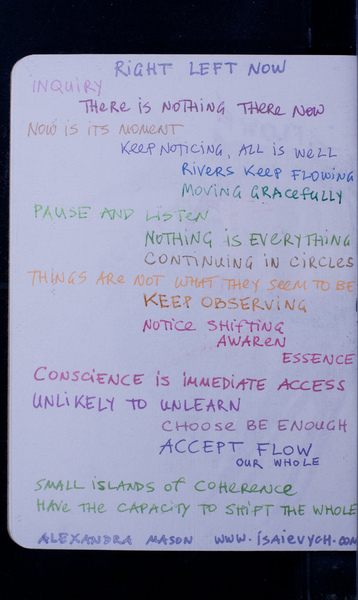 RIGHT LEFT NOW
INQUIRY
THERE IS NOTHING THERE NOW
NOW IS ITS MOMENT
KEEP NOTICING, ALL IS WELL
RIVERS KEEP FLOWING
MOVING GRACEFULLY
PAUSE AND LISTEN
NOTHING IS EVERYTHING
CONTINUING IN CIRCLES
THINGS ARE NOT WHAT THEY SEEM TO BE
KEEP OBSERVING
NOTICE SHIFTING
AWAREN
ESSENCE
CONSCIENCE IS IMMEDIATE ACCESS
UNLIKELY TO UNLEARN
CHOOSE BE ENOUGH
ACCEPT FLOW
OUR WHOLE
SMALL ISLANDS OF COHERENCE
HAVE THE CAPACITY TO SHIFT THE WHOLE
ALEXANDRA MASON WWW.ISAIEVYCH.COM